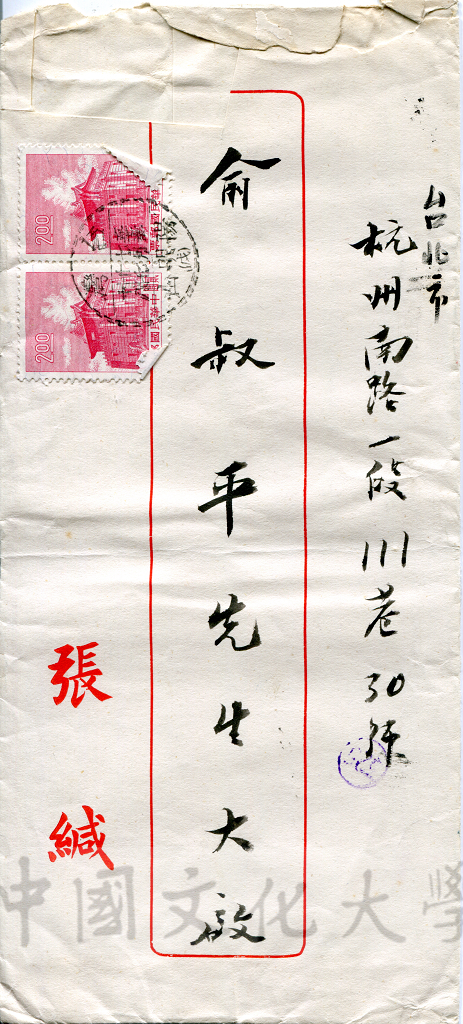 台北市
杭州南路一段111巷30號
俞叔平先生大啟
張緘
200
200
中國文化大學